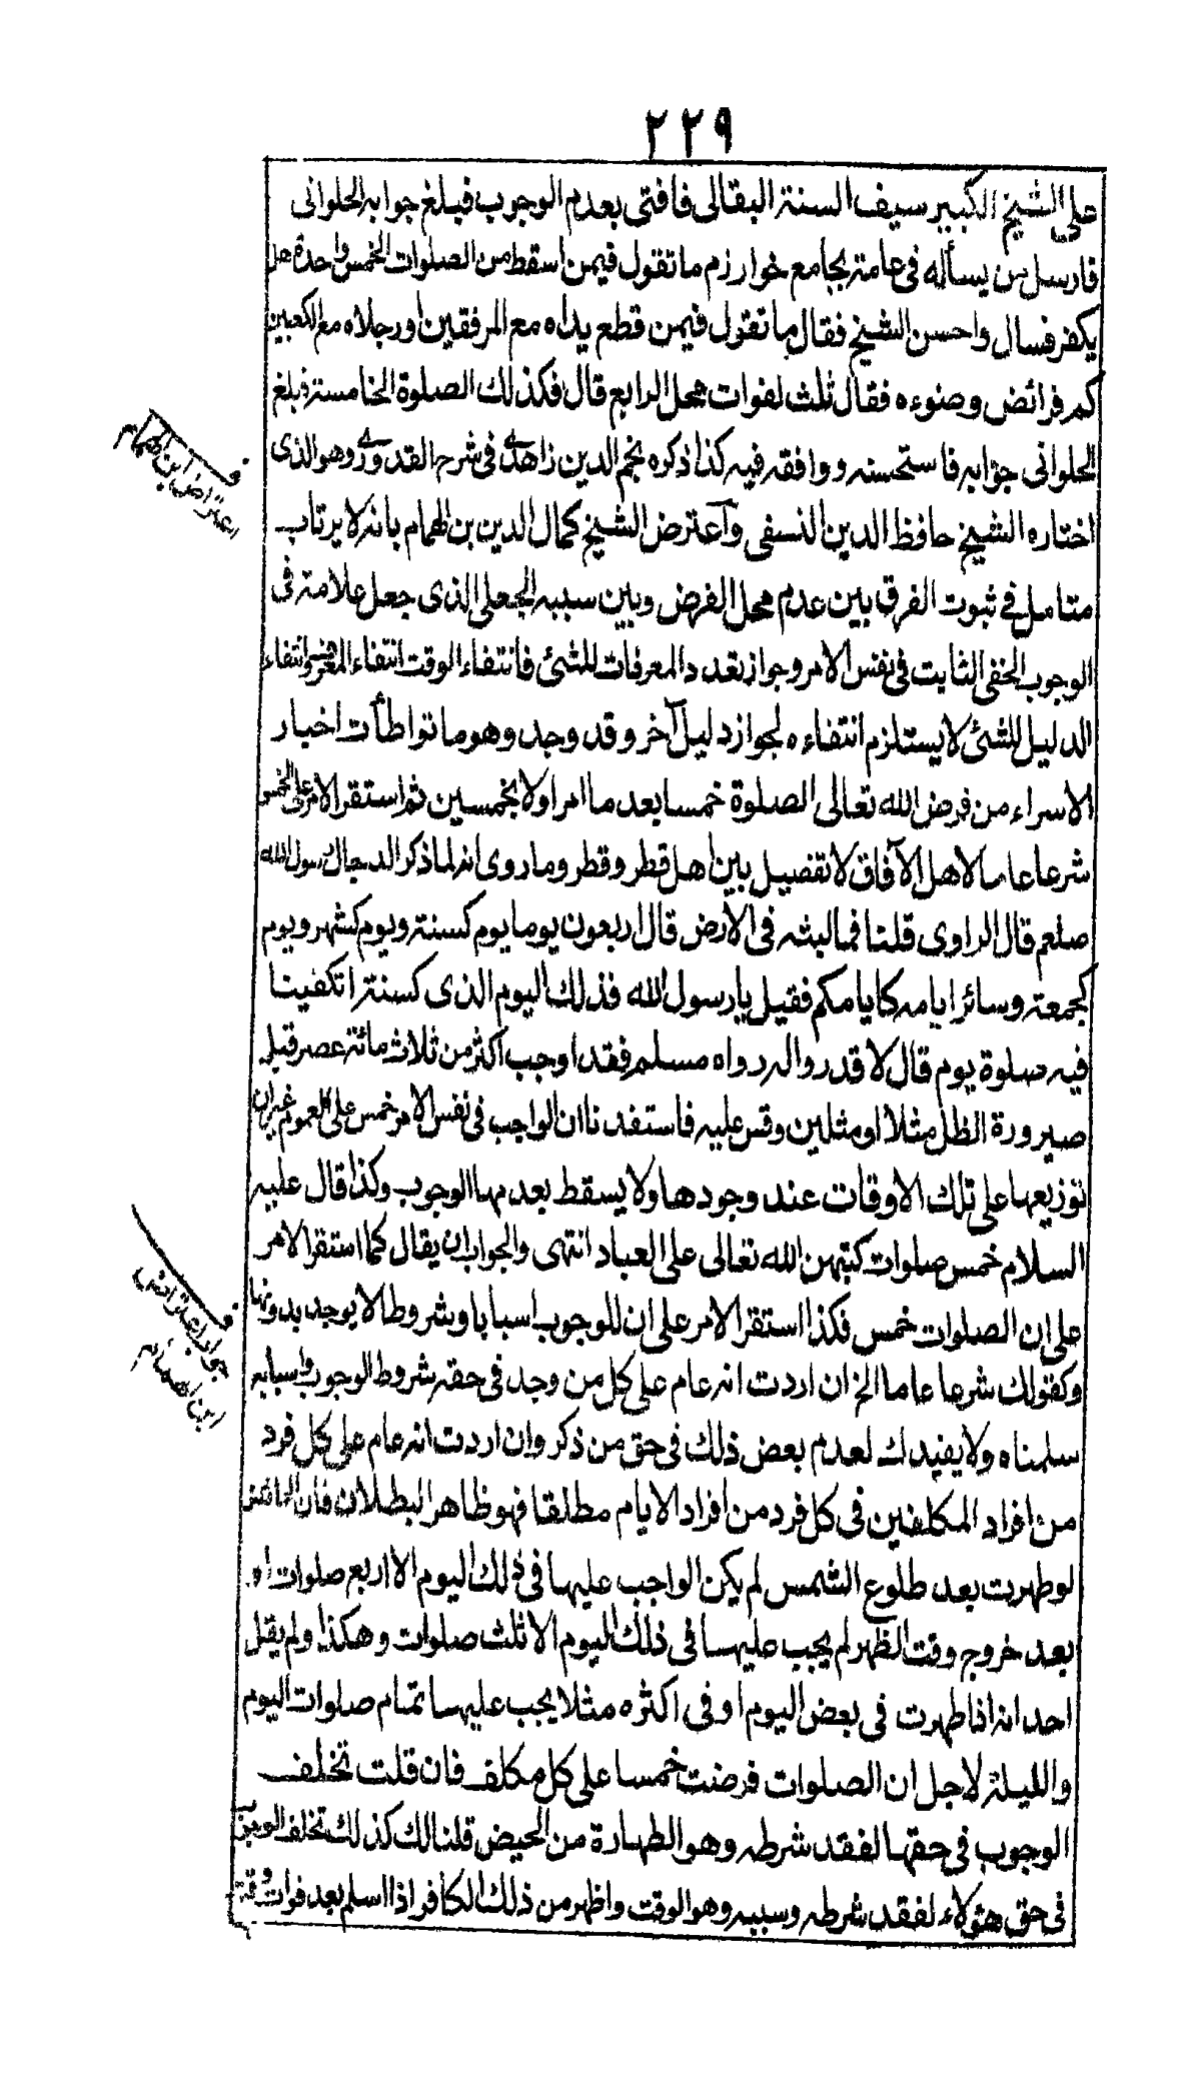 ٢٢٩
على الشيخ الكبير سيف السنة البقالى فافتى بعدم الوجوب فبلغ جوابه الحلوانى
فارسل من يسأله فى عامته بجامع خوارزم ما تقول فيمن اسقط من الصلوات الخمس واحدة هل
يكفر فسال واحسن الشيخ فقال ما تقول فيمن قطع يداه مع المرفقين او رجلاه مع الكعبين
كم فرائض وضوءه فقال ثلث لفوات محل الرابع قال فكذلك الصلوة الخامسة فبلغ
الحلوانى جوابه فاستحسنه ووافقه فيه كذا ذكره نجم الدين زاهدى فى شرح القدورى وهو الذى
اختاره الشيخ حافظ الدين النسفى وآعترض الشيخ كمال الدين بن الهمام بانه لا يرتاب
متامل فى ثبوت الفرق بين عدم محل الفرض وبين سببه الجعلى الذى جعل علامة فى
الوجوب الخفى الثابت فى نفس الامر وجواز تعدد المعرفات للشئ فانتفاء الوقت انتفاء المعرف وانتفاء
الدليل للشئ لا يستلزم انتفاءه لجواز دليل آخر وقد وجد وهو ما تواطأت اخبار
الاسراء من فرض الله تعالى الصلوة خمسا بعد ما امر اولا بخمسين ثم استقر الامر على الخمس
شرعا عاما لاهل الآفاق لا تفصيل بين اهل قطر وقطر وما روى انه لما ذكر الدجال رسول الله
صلعم قال الراوى قلنا فما لبثه فى الارض قال اربعون يوما يوم كسنة ويوم كشهر ويوم
كجمعة وسائر ايامه كايامكم فقيل يا رسول الله فذلك اليوم الذى كسنة اتكفينا
فيه صلوة يوم قال لا قدروا له رواه مسلم فقد اوجب اكثر من ثلاث مائة عصر قبل
صيرورة الظل مثلا او مثلين وقس عليه فاستفدنا ان الواجب فى نفس الامر خمس على العموم غير ان
توزيعها على تلك الاوقات عند وجودها ولا يسقط بعدمها الوجوب وكذا قال عليه
السلام خمس صلوات كتبهن الله تعالى على العباد انتهى والجواب ان يقال كما استقر الامر
على ان الصلوات خمس فكذا استقر الامر على ان للوجوب اسبابا وشروطا لا يوجد بدونها
وكقولك شرعا عاما الخ ان اردت انه عام على كل من وجد فى حقه شروط الوجوب واسبابه
سلمناه ولا يفيدك لعدم بعض ذلك فى حق من ذكر وان اردت انه عام على كل فرد
من افراد المكلفين فى كل فرد من افراد الايام مطلقا فهو ظاهر البطلان فان الحائض
لو طهرت بعد طلوع الشمس لم يكن الواجب عليها فى ذلك اليوم الا اربع صلوات او
بعد خروج وقت الظهر لم يجب عليها فى ذلك اليوم الا ثلث صلوات وهكذا ولم يقل
احد انه اذا طهرت فى بعض اليوم او فى اكثره مثلا يجب عليها تمام صلوات اليوم
والليلة لاجل ان الصلوات فرضت خمسا على كل مكلف فان قلت تخلف
الوجوب فى حقها لفقد شرطه وهو الطهارة من الحيض قلنا لك كذلك تخلف الوجوب
فى حق هؤلاء لفقد شرطه وسببه وهو الوقت واظهر من ذلك الكافر اذا اسلم بعد فوات وقت
اعتراض ابن الهمام
جواب اعتراض
ابن همام